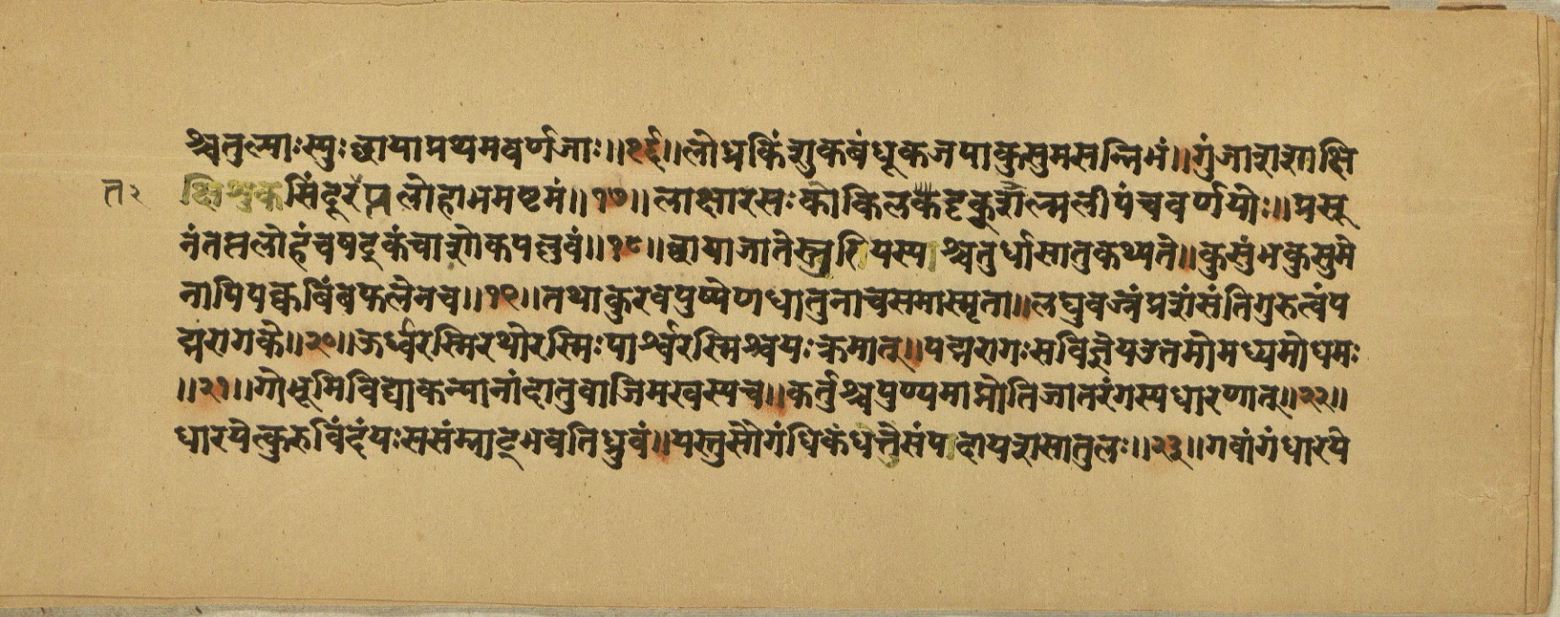 श्चतुल्याःस्युःछायाप्रथमवर्णजाः॥१६॥लोध्रकिंशुकबंधूकजपाकुसुमसन्निभं॥गुंजाशशाक्षि
सिंदूरंप्रलोहाभमष्टमं॥१७॥लाक्षारसःकोकिलकदृक्कुशाल्मलीपंचवर्णयोः॥प्रसू
नंतप्तलोहंचषट्कंचाशोकपल्लवं॥१८॥छायाजातेस्तुरियस्यश्चतुर्धासातुकथ्यते॥कुसुंभकुसुमे
नापिपक्वबिंबफलेनच॥१९॥तथाकुरवपुष्पेणधातुनाचसमास्मृता॥लघुवज्रंप्रशंसंतिगुरुत्वंप
द्मरागके॥२०॥ऊर्ध्वरस्मिरथोरस्मिःपार्श्वरस्मिश्चयःक्रमात्॥पद्मरागःसविज्ञेयउतमोमध्यमोधमः
॥२१॥गोभूमिविद्याकन्यानांदातुवाजिमखस्यच॥कर्तुश्चपुण्यमाप्नोतिजातरंगस्यधारणात्॥२२॥
धारयेत्कुरुविंदंयःससंम्राट्भवतिध्रुवं॥यस्तुसौगंधिकंधत्तेसंपदोयशसातुलः॥२३॥गवांगंधारये